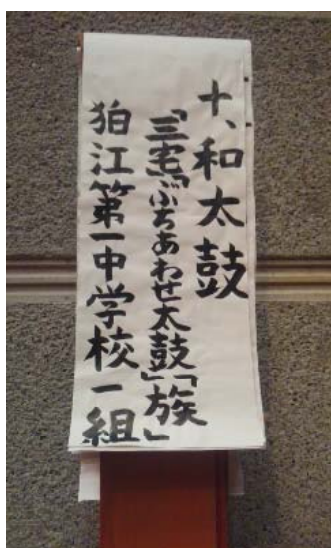 十、和太鼓
「三宅」「ぶちあわせ太鼓」「族」
狛江第一中学校一組